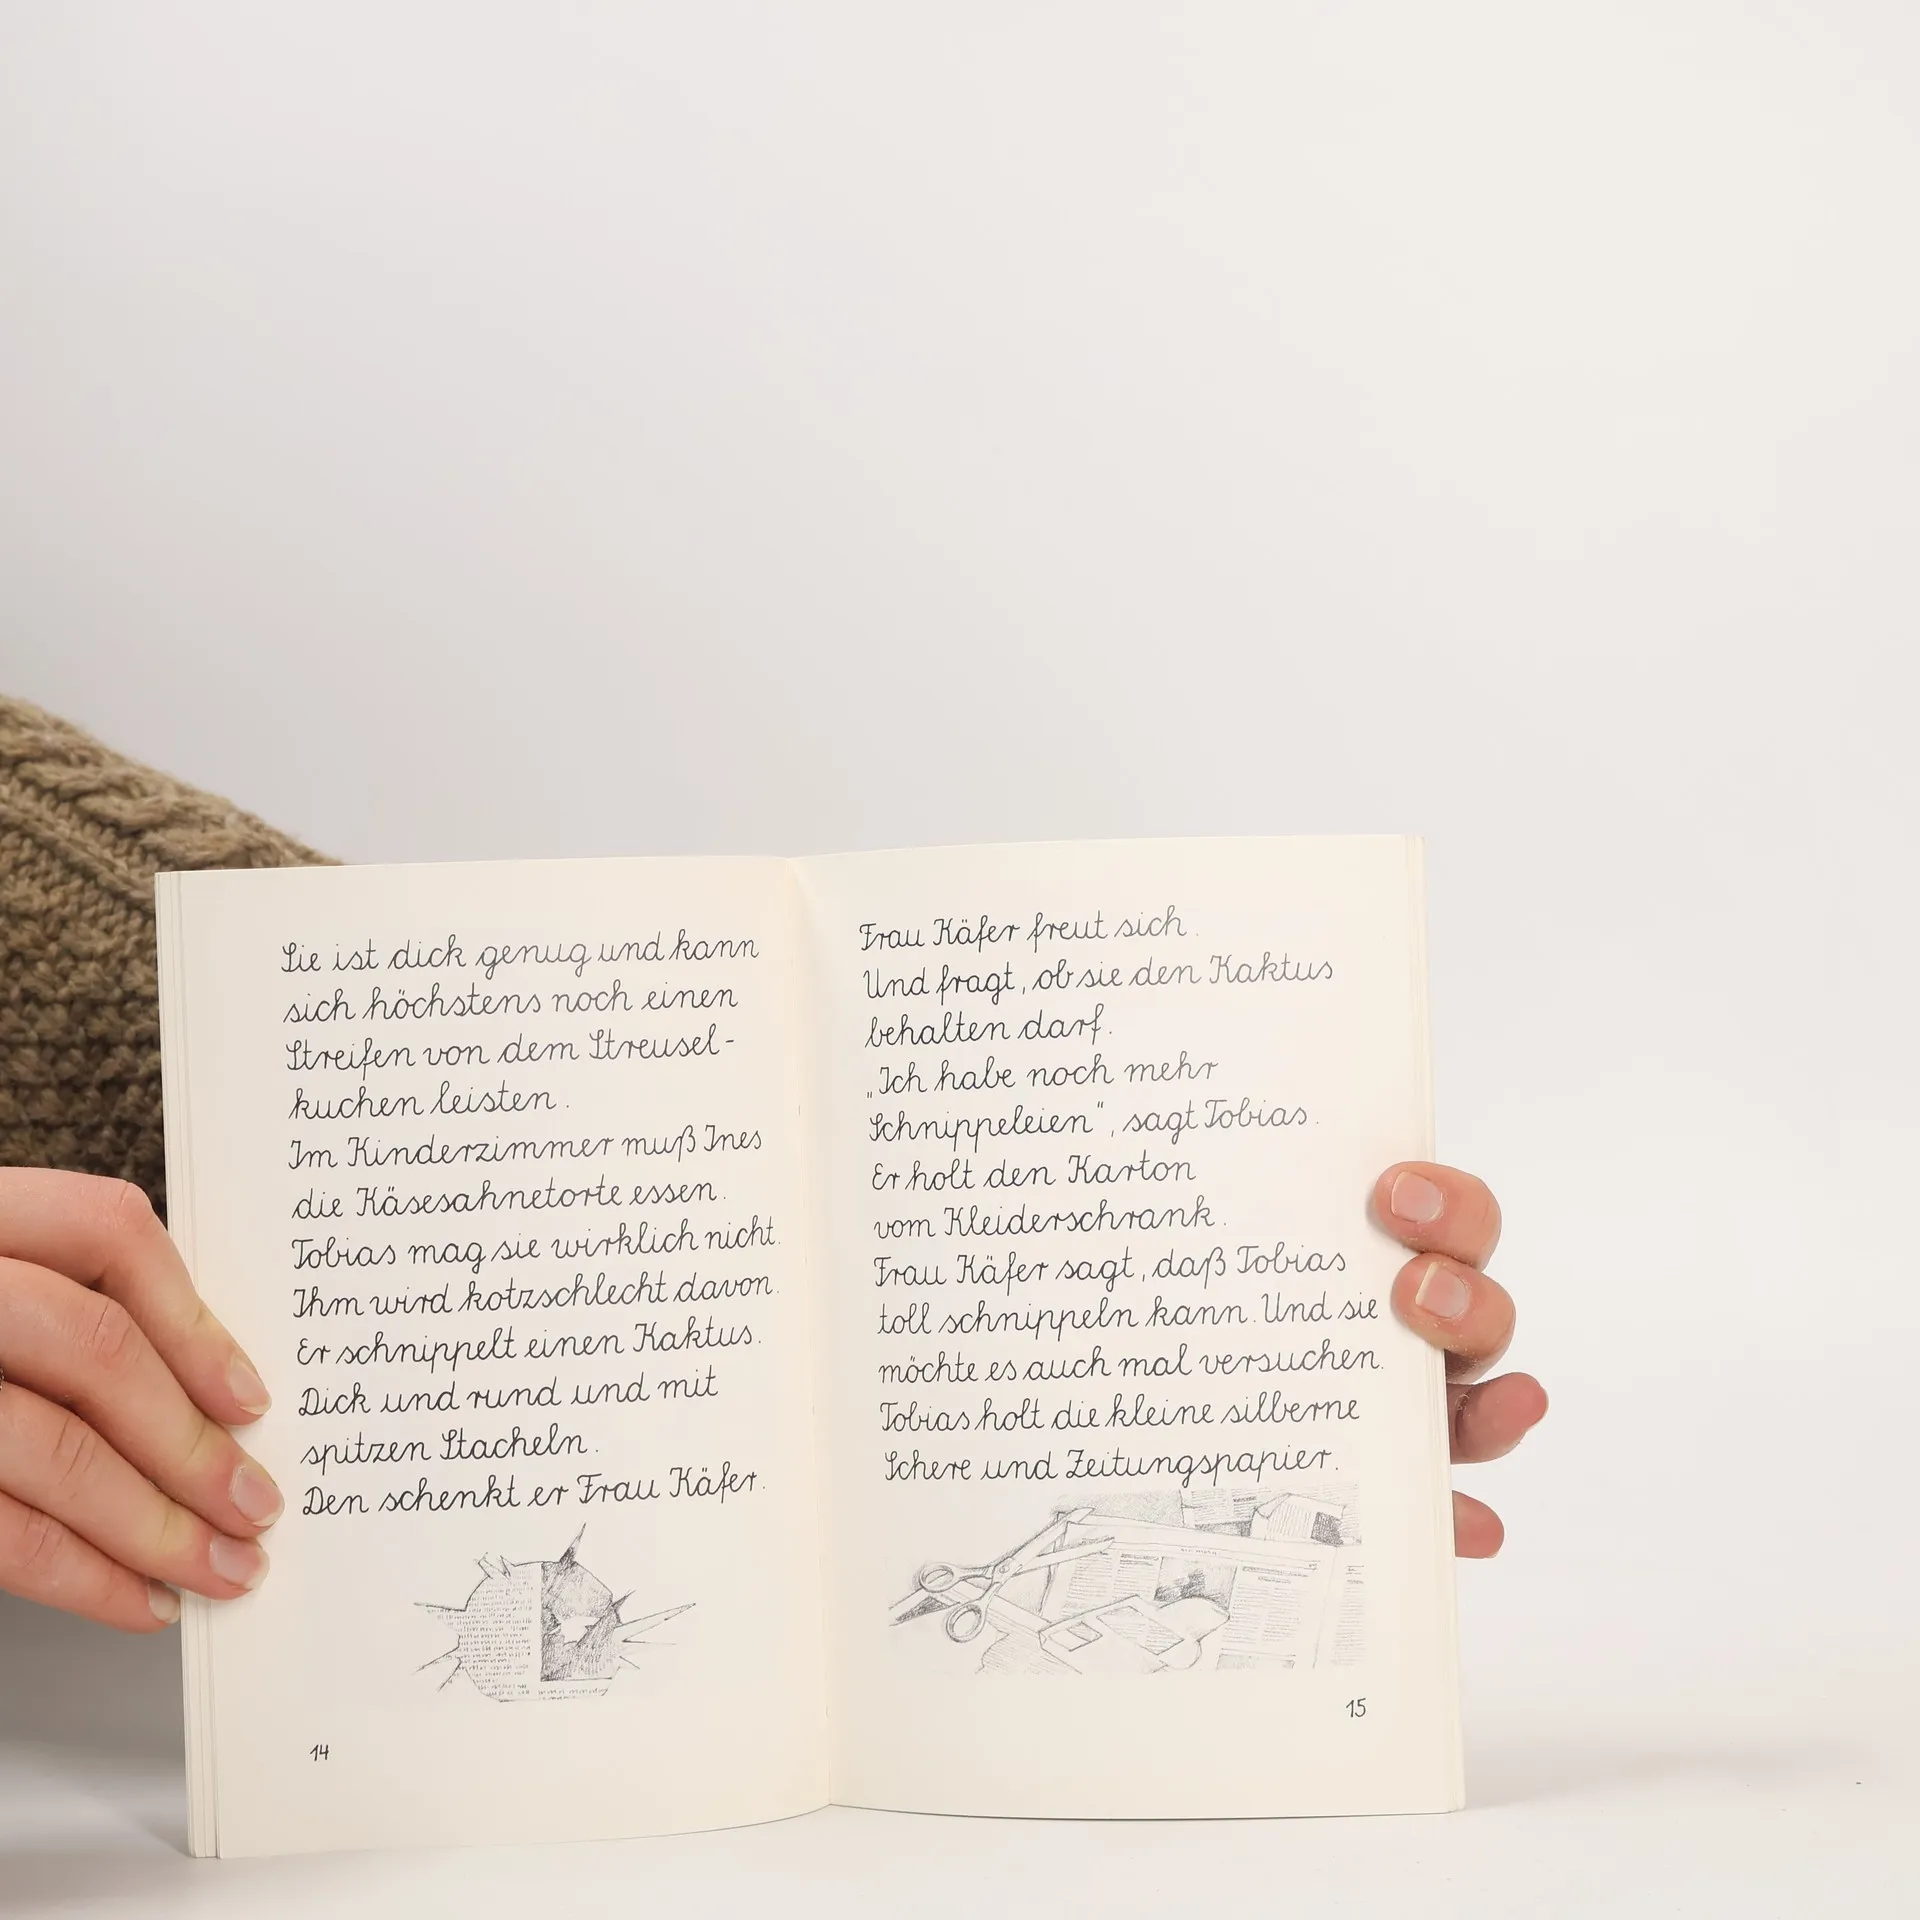 Sie ist dick genug und kann
sich höchstens noch einen
Streifen von dem Streusel-
kuchen leisten.
Im Kinderzimmer muß Ines
die Käsesahnetorte essen.
Tobias mag sie wirklich nicht.
Ihm wird kotzschlecht davon.
Er schnippelt einen Kaktus.
Dick und rund und mit
spitzen Stacheln.
Den schenkt er Frau Käfer.
14
Frau Käfer freut sich.
Und fragt, ob sie den Kaktus
behalten darf.
„Ich habe noch mehr
Schnippeleien“, sagt Tobias.
Er holt den Karton
vom Kleiderschrank.
Frau Käfer sagt, daß Tobias
toll schnippeln kann. Und sie
möchte es auch mal versuchen.
Tobias holt die kleine silberne
Schere und Zeitungspapier.
15